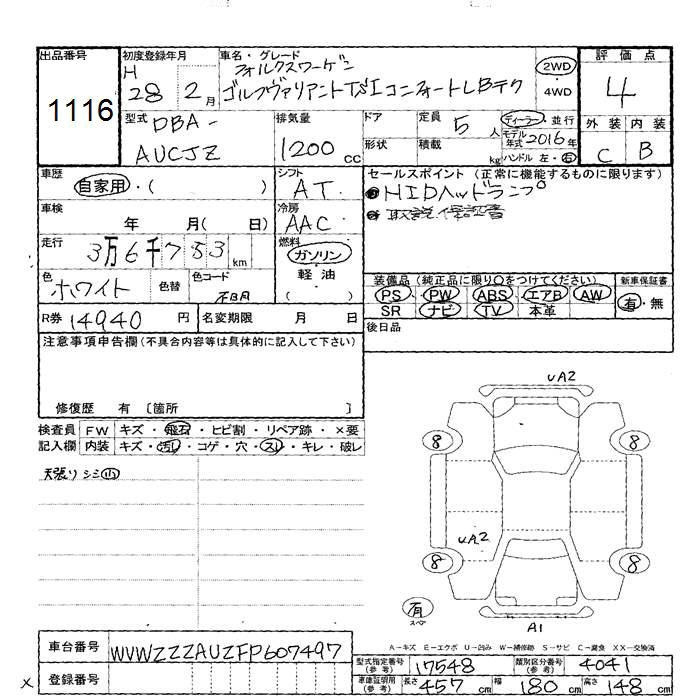 出品番号 初度登録年月 車名・グレード 評価点
1116 H 28 2月 フォルクスワーゲン 2WD 4
ゴルフヴァリアントTSIコンフォートLBテク ・4WD
型式 DBA- 排気量 ドア 定員 5 人 ディーラー・並行 外装 内装
AUCJZ 1200 cc 形状 積載 kg モデル年式 2016年 C B
ハンドル 左・右
車歴 自家用・( ) シフト AT セールスポイント(正常に機能するものに限ります)
HIDヘッドランプ
車検 年 月( 日) 冷房 AAC 取説 保証書
走行 3万6千753km 燃料 ガソリン
軽油
( )
色 ホワイト 色替 色コード 不明 装備品(純正品に限り○をつけてください) 新車保証書
PS PW ABS エアB AW 有・無
SR ナビ TV 本革
R券 14940 円 名変期限 月 日 後日品
注意事項申告欄(不具合内容等は具体的に記入して下さい)
修復歴 有 〔箇所 〕
検査員 FW キズ・飛石・ヒビ割・リペア跡・×要
記入欄 内装 キズ・汚レ・コゲ・穴・スレ・キレ・破レ
天張りシミ小
UA2
8 8
UA2
8 8
有
スペア
A1
A−キズ E−エクボ U−凹み W−補修跡 S−サビ C−腐食 XX−交換済
車台番号 WVWZZZAUZFP607497
型式指定番号(参考) 17548 類別区分番号(参考) 4041
登録番号 車庫証明用(参考) 長さ 457 cm 幅 180 cm 高さ 148 cm
x